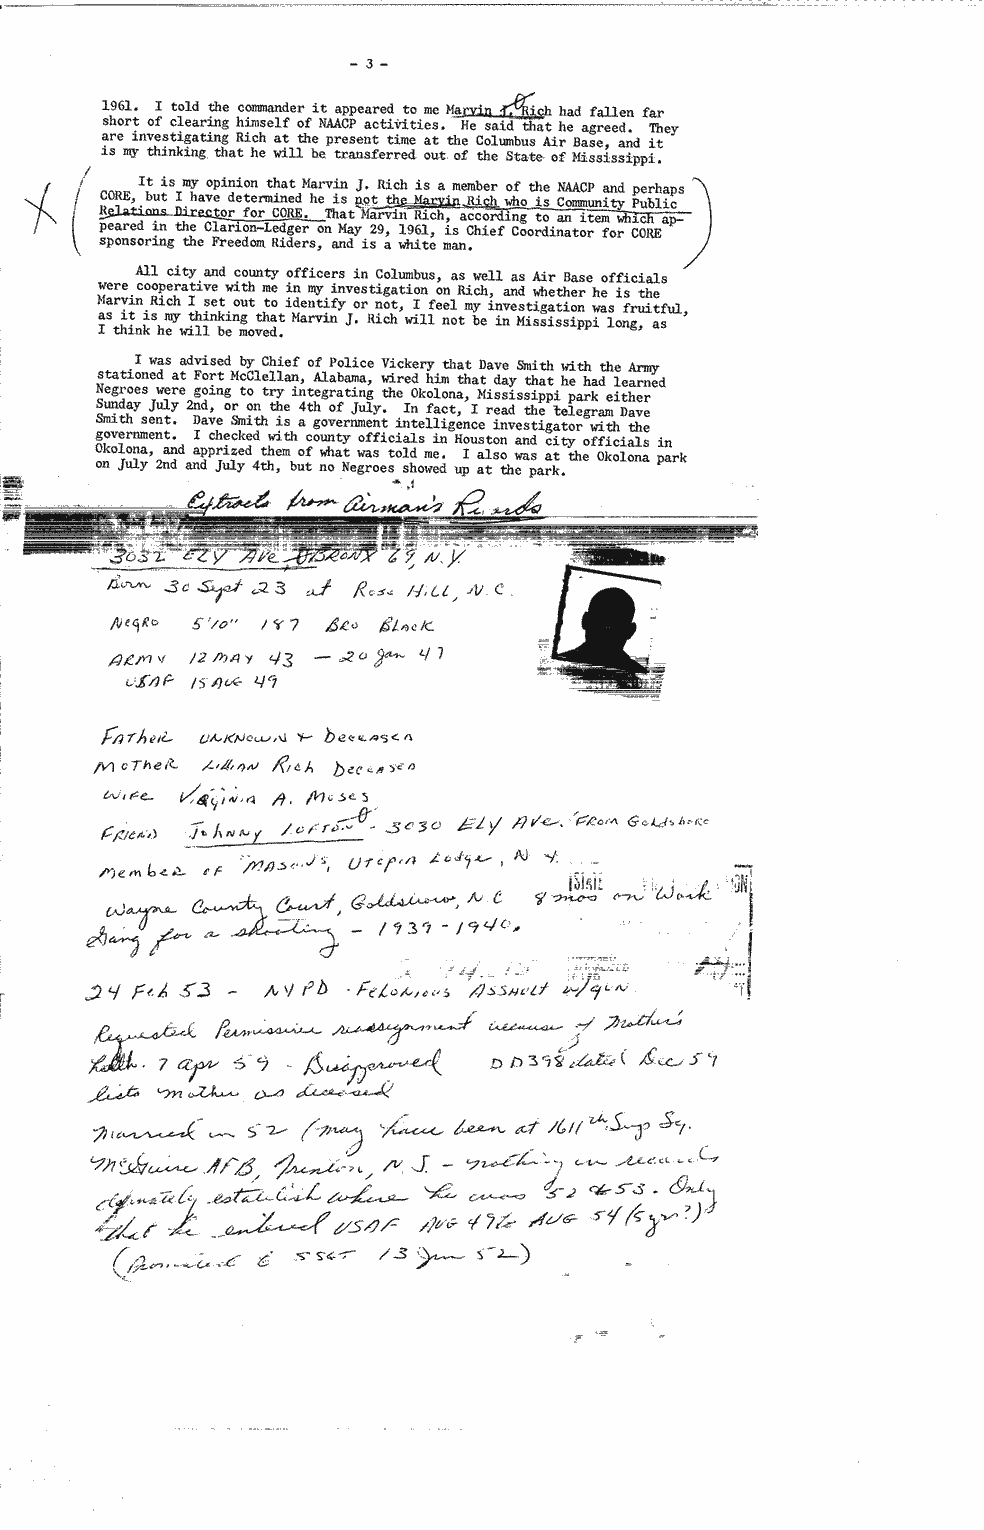 - 3 -
1961.  I told the commander it appeared to me Marvin J. Rich had fallen far
short of clearing himself of NAACP activities.  He said that he agreed.  They
are investigating Rich at the present time at the Columbus Air Base, and it
is my thinking that he will be transferred out of the State of Mississippi.
X
It is my opinion that Marvin J. Rich is a member of the NAACP and perhaps
CORE, but I have determined he is not the Marvin Rich who is Community Public
Relations Director for CORE.  That Marvin Rich, according to an item which ap-
peared in the Clarion-Ledger on May 29, 1961, is Chief Coordinator for CORE
sponsoring the Freedom Riders, and is a white man.
All city and county officers in Columbus, as well as Air Base officials
were cooperative with me in my investigation on Rich, and whether he is the
Marvin Rich I set out to identify or not, I feel my investigation was fruitful,
as it is my thinking that Marvin J. Rich will not be in Mississippi long, as
I think he will be moved.
I was advised by Chief of Police Vickery that Dave Smith with the Army
stationed at Fort McClellan, Alabama, wired him that day that he had learned
Negroes were going to try integrating the Okolona, Mississippi park either
Sunday July 2nd, or on the 4th of July.  In fact, I read the telegram Dave
Smith sent.  Dave Smith is a government intelligence investigator with the
government.  I checked with county officials in Houston and city officials in
Okolona, and apprized them of what was told me.  I also was at the Okolona park
on July 2nd and July 4th, but no Negroes showed up at the park.
Extracts from Airman's Records
3032 ELY Ave BRONX 69, N.Y.
Born 30 Sept 23 at Rose Hill, N.C.
Negro 5'10" 187 Bro Black
ARMY 12 MAY 43 — 20 Jan 47
USAF 15 AUG 49
Father UNKNOWN & Deceased
Mother Lillian Rich Deceased
Wife Virginia A. Moses
Friend Johnny Lofton - 3030 ELY Ave. From Goldsboro
Member of "Masons", Utopia Lodge, N.Y.
Wayne County Court, Goldsboro, N.C 8 mos on Work
Gang for a shooting - 1939-1940.
24 Feb 53 - NYPD - Felonious Assault w/gun
Requested Permissive reassignment because of Mother's
health. 7 apr 59 - Disapproved DD398 dated Dec 54
lists mother as deceased
Married in 52 (may have been at 1611th Sup Sq.
McGuire AFB, Trenton, N.J. - nothing in records
definately establish where he was 52 & 53. Only
that he entered USAF AUG 49 to AUG 54 (5 yrs?)
(Promoted to SSGT 13 Jun 52)